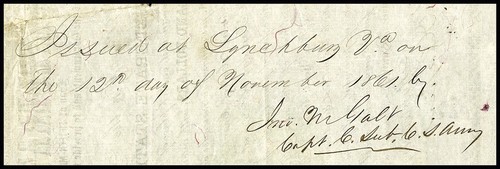 Issued at Lynchburg Va on
the 12th day of November 1861. by.
Jno. M Galt
Capt. C. Sub. C. S. Army